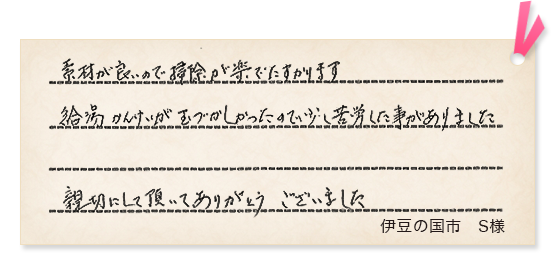 素材が良いので掃除が楽でたすかります
給湯かんけいがむづかしかったので少し苦労した事がありました
親切にして頂いてありがとうございました
伊豆の国市　S様